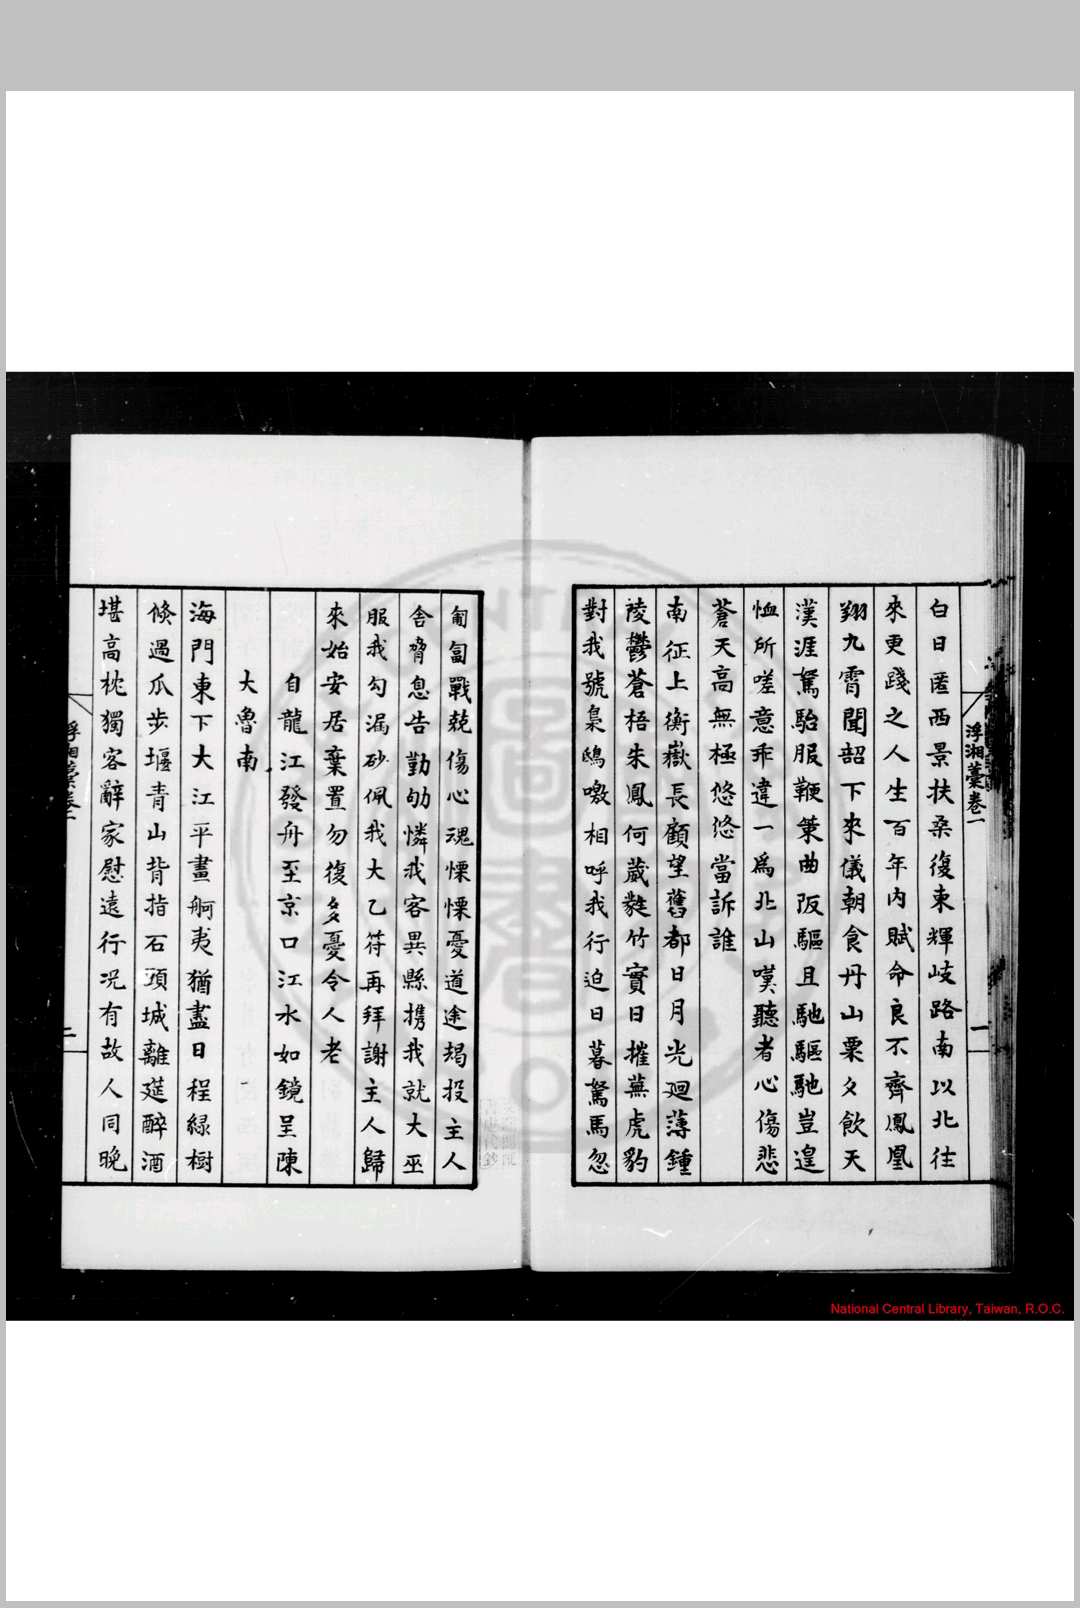 浮湘藁卷一
一
白日匿西景扶桑復東輝岐路南以北往
來更踐之人生百年内賦命良不齊鳳凰
翔九霄聞韶下來儀朝食丹山粟夕飲天
漢涯駑駘服鞭策曲阪驅且馳驅馳豈遑
恤所嗟意乖違一為北山嘆聽者心傷悲
蒼天高無極悠悠當訴誰
南征上衡嶽長顧望舊都日月光迴薄鍾
陵鬱蒼梧朱鳳何葳蕤竹實日摧蕪虎豹
對我號梟鴟噭相呼我行迫日暮駑馬忽
匍匐戰兢傷心魂慄慄憂道途竭投主人
舍脅息告勤劬憐我客異縣携我就大巫
服我勾漏砂佩我大乙符再拜謝主人歸
來始安居棄置勿復多憂令人老
自龍江發舟至京口江水如鏡呈陳
大魯南
海門東下大江平畫舸夷猶盡日程緑樹
倏過瓜步堰青山背指石頭城離筵醉酒
堪高枕獨客辭家慰遠行况有故人同晚
浮湘藁卷一
二
National Central Library, Taiwan, R.O.C.